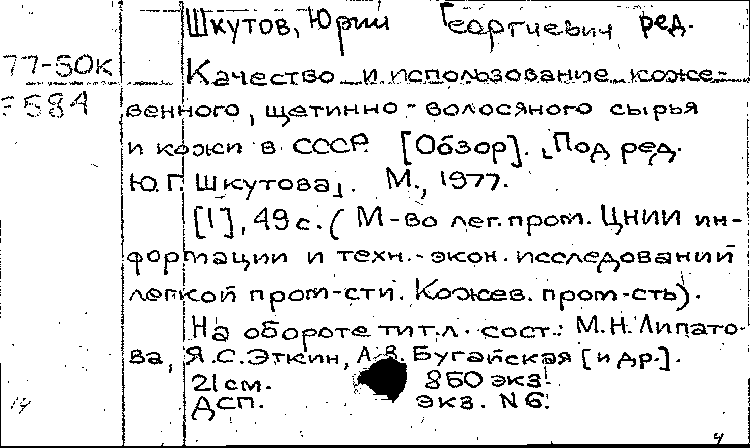 Шкутов, Юрий Георгиевич ред.
77-50к
584
Качество и использование коже-
венного, щетинно-волосяного сырья
и кожи в СССР. [Обзор]. ⌊Под ред.
Ю.Г. Шкутова⌋. М., 1977.
[1], 49 с. (М-во лег. пром. ЦНИИ ин-
формации и техн.-экон. исследований
легкой пром-сти. Кожев. пром-сть).
На обороте тит. л. сост.: М.Н. Липато-
ва, Я.С. Эткин, А.В. Бугайская [и др.].
21 см. 850 экз.
ДСП. экз. N 6.
14
4